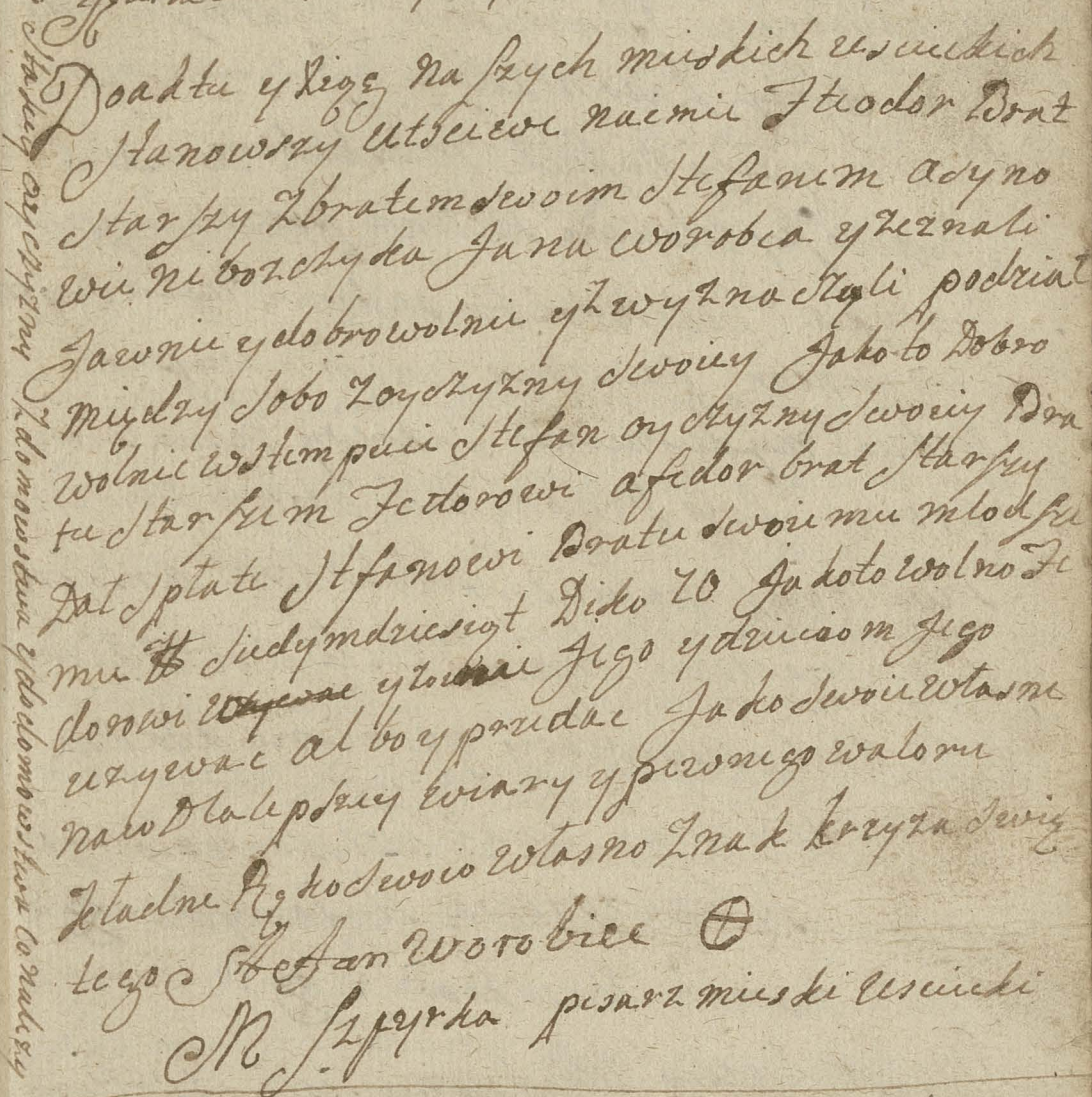 Do aktu y Xięg naszych mieskich uscieckich
Stanowszy utsciewe naimie Fteodor Brat
Starszy z bratem swoim Stefanem a syno
wie niebozczyka Jana worobca y zeznali
Jawnie y dobrowolnie y z wyznaczyli podział
między sobo z oyczyzny swoiey Jako to Dobro
wolnie wstempuie Stefan oyczyzny swoiey Bra
tu Starszem Fedorowi a fedor brat Starszy
Dał spłate Stfanowi Bratu swoiemu młodsze
mu # siedymdziesiąt Diko 70 Jako to wolno Fe
dorowi y zonie Jego y dzieciom Jego
uzywac al bo y przedac Jako swoie własne
naw Dla lepszey wiary y pewnego waloru
kładne Ręko swoio własno Znak krzyza swię
tego Stefan Worobiec
M Szpyrka pisarz mieski usciecki
Stałey oyczyzny z domowstwa y do domowstwa co nalezy